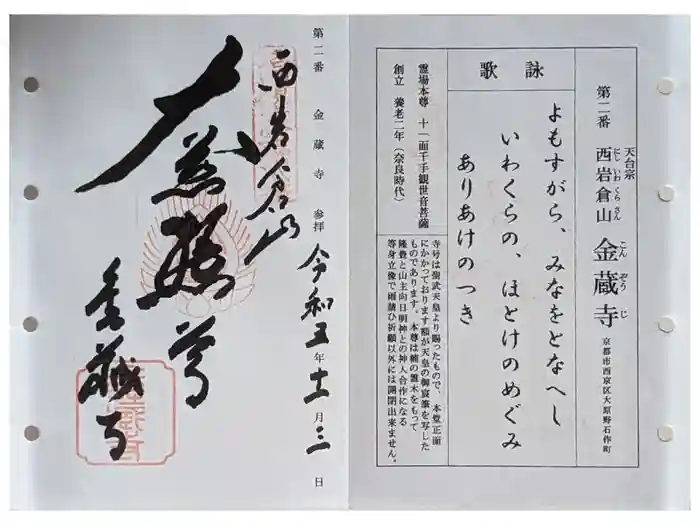 第二番
天台宗
西岩倉山
にしいわくらさん
金蔵寺
こんぞうじ
京都市西京区大原野石作町
詠歌
よもすがら、みなをとなへし
いわくらの、ほとけのめぐみ
ありあけのつき
霊場本尊 十一面千手観世音菩薩
創立 養老二年(奈良時代)
寺号は聖武天皇より賜ったもので、本堂正面
にかかっております額が天皇の御宸筆を写した
ものであります。本尊は楠の霊木をもって
隆豊と山主向日明神との神人合作になる
等身立像で雨請ひ祈願以外には開閉出来ません。
第二番 金蔵寺 参拝 令和五年十一月三日
西岩倉山
大慈殿
金蔵寺